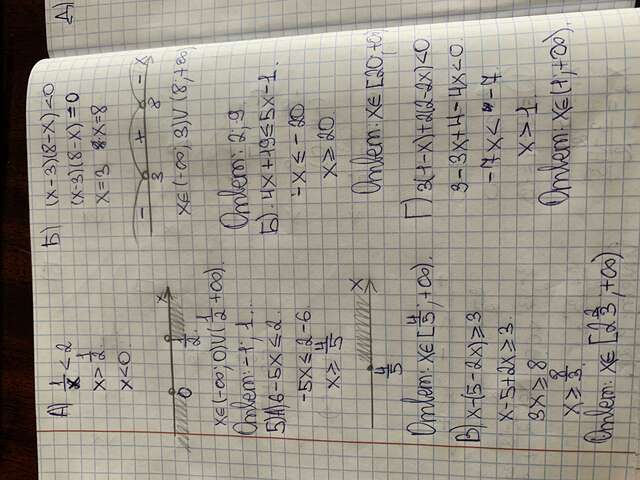 А) 1/x < 2
x > 1/2
x < 0.
0 1/2 x
x ∈ (-∞; 0) ∪ (1/2; +∞).
Ответ: -1; 1.
5) А) 6 - 5x ≤ 2.
-5x ≤ 2 - 6.
x ≥ 4/5
4/5 x
Ответ: x ∈ [4/5; +∞).
В) x - (5 - 2x) ≥ 3
x - 5 + 2x ≥ 3.
3x ≥ 8
x ≥ 8/3.
Ответ: x ∈ [2 2/3; +∞)
Б) (x - 3)(8 - x) < 0
(x - 3)(8 - x) = 0
x = 3 x = 8
- + - x
3 8
x ∈ (-∞; 3) ∪ (8; +∞)
Ответ: 2; 9
Б) 4x + 19 ≤ 5x - 1.
-x ≤ -20
x ≥ 20
Ответ: x ∈ [20; +∞)
Г) 3(1 - x) + 2(2 - 2x) < 0
3 - 3x + 4 - 4x < 0.
-7x < -7
x > 1
Ответ: x ∈ (1; +∞).
Д)